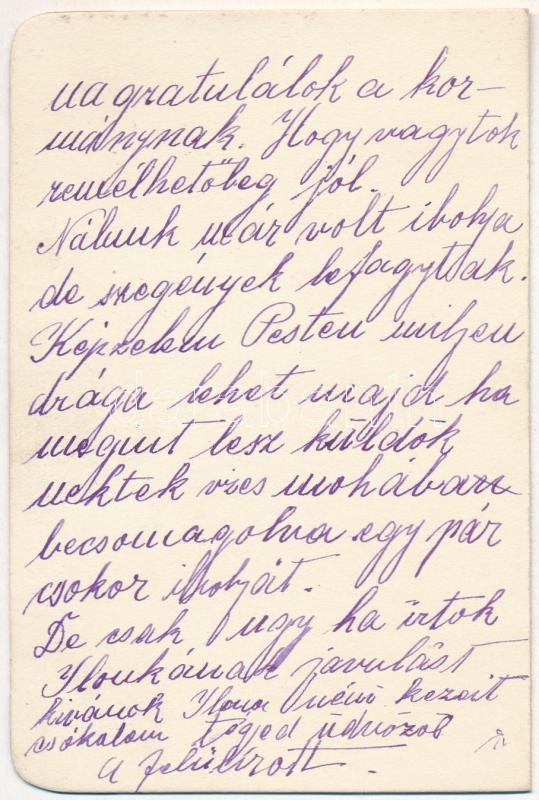 nagratulálok a kor–
mánynak. Hogy vagytok
remélhetőleg jól.
Nálunk már volt ibolya
de szegények lefagytak.
Képzelem Pesten milyen
drága lehet majd ha
megint lesz küldök
nektek vizes mohában
becsomagolva egy pár
csokor ibolyát.
De csak ugy ha irtok
Ilonkának javulást
kivánok Ilona néni kezeit
csókolom Téged üdvözöl
a felülirott.